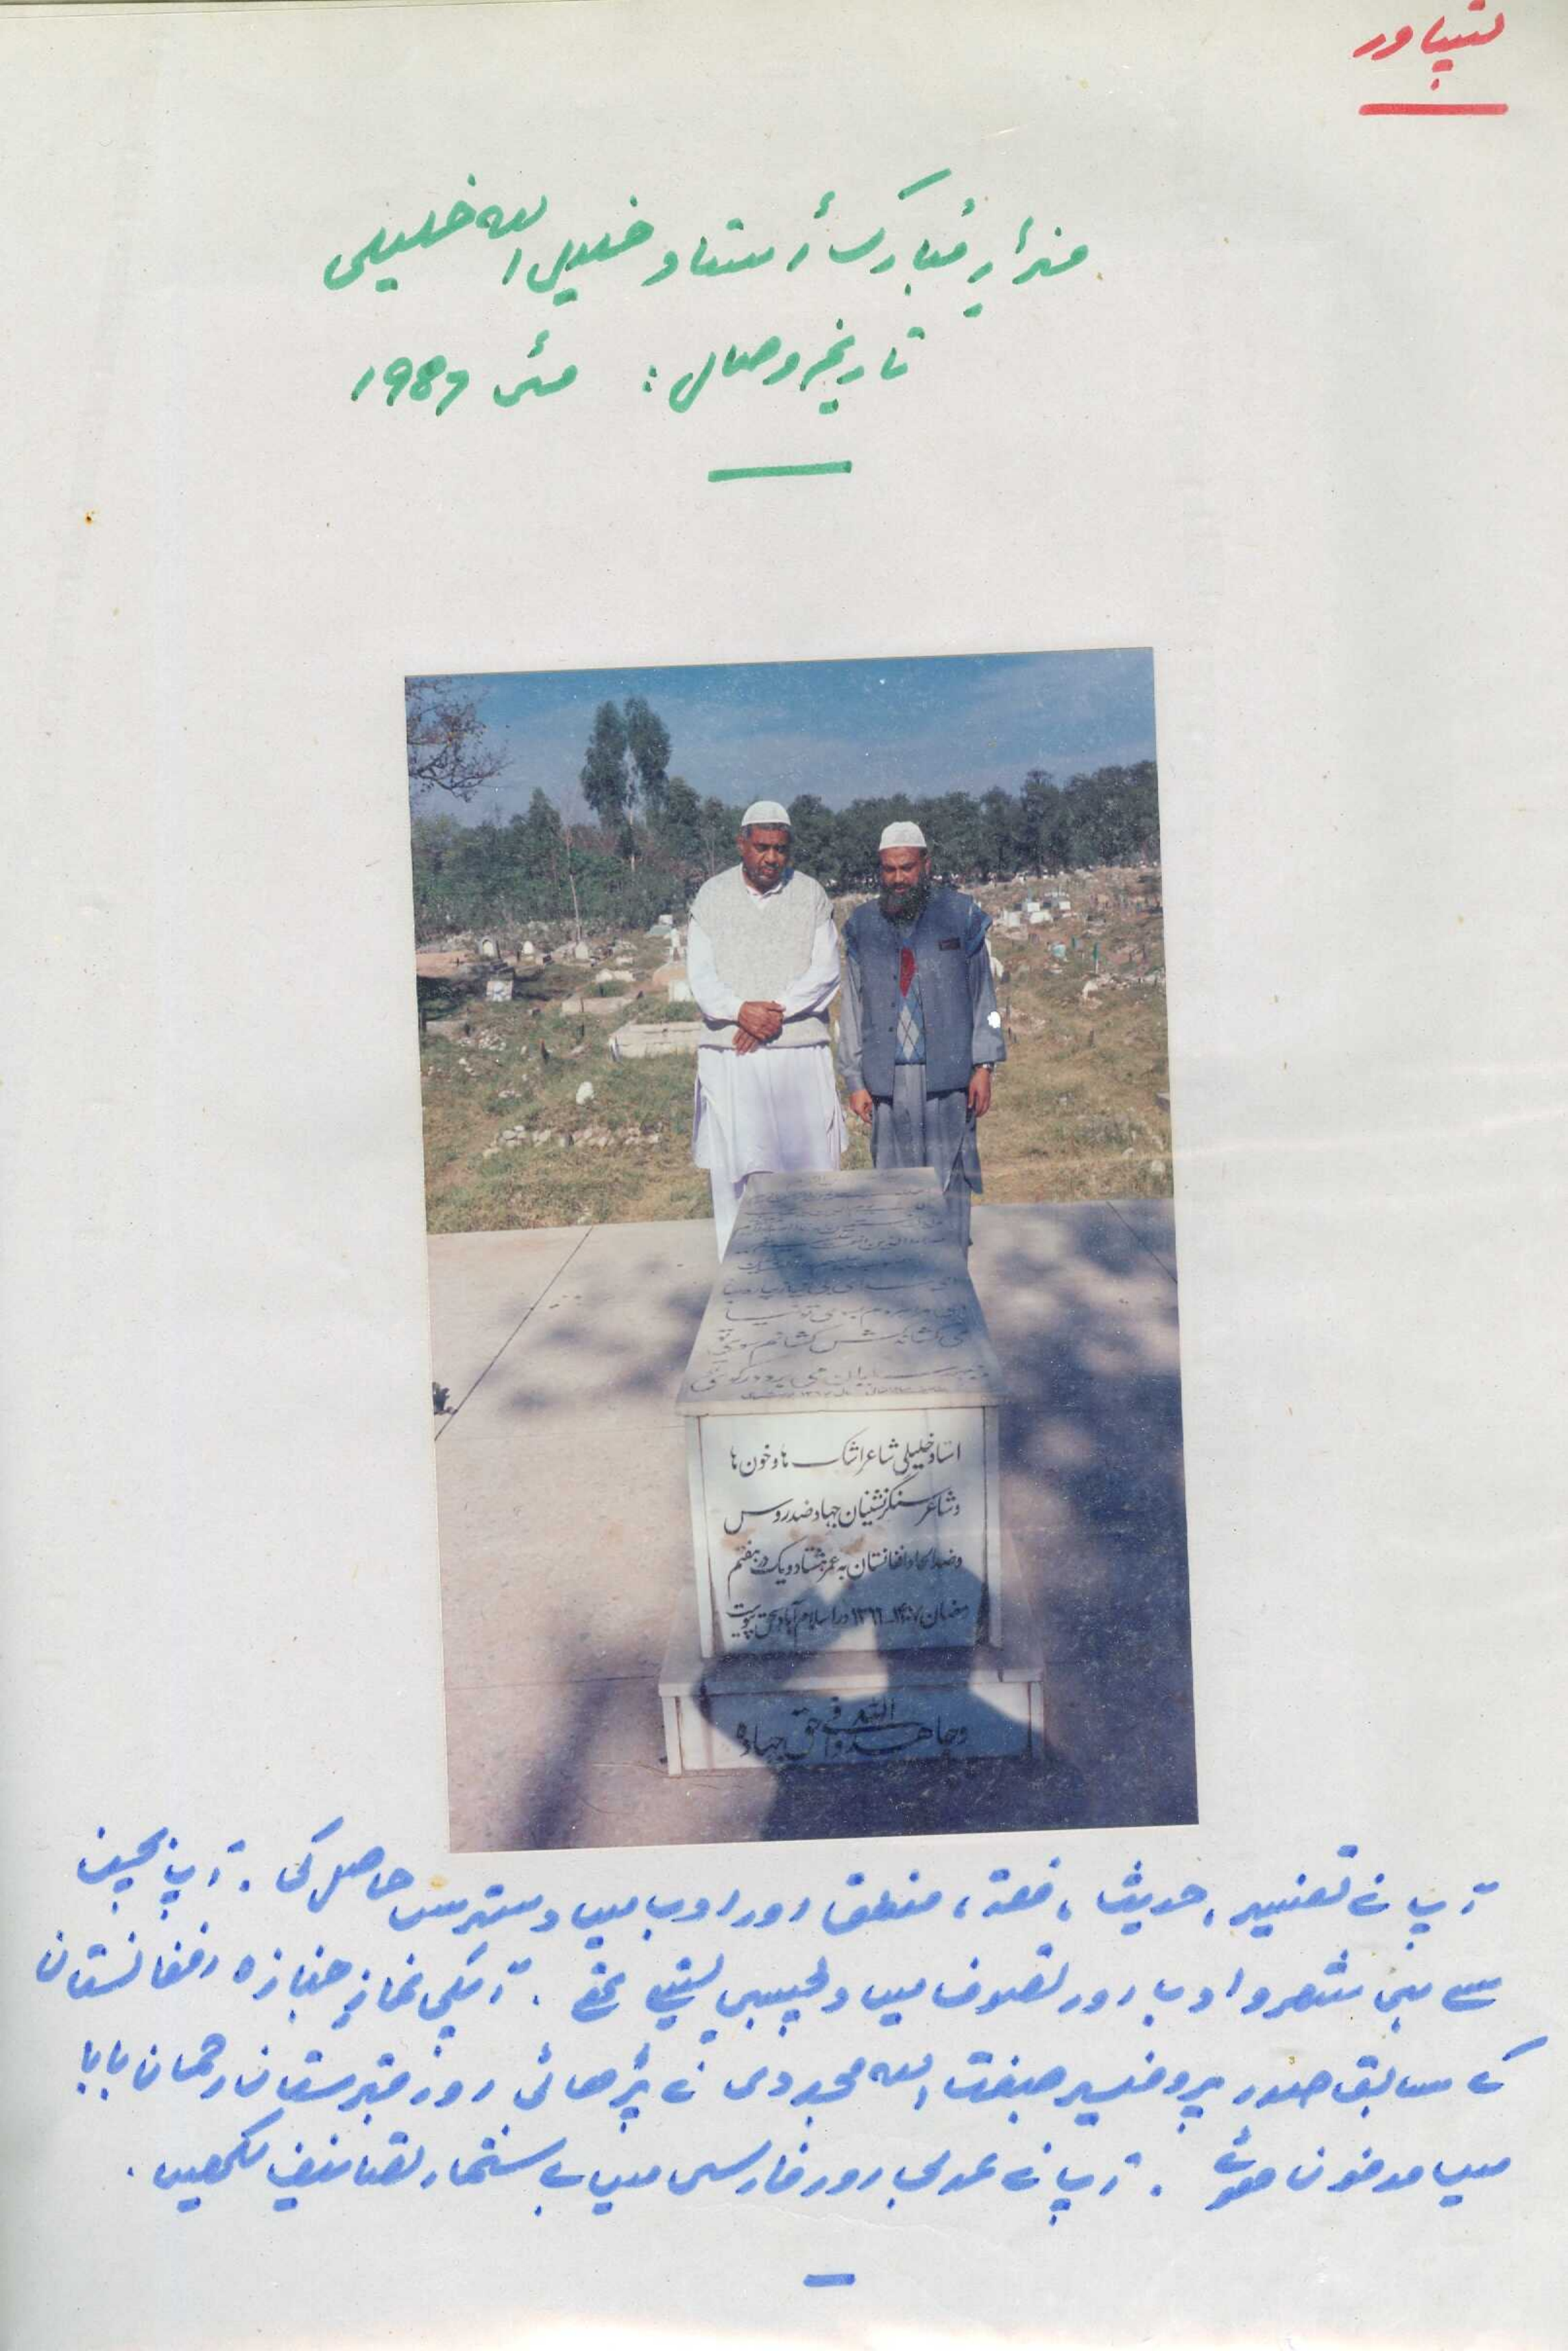 پشاور
مزارِ مُبارک اُستاد خلیل اللہ خلیلی
تاریخِ وصال: مئی 1987
استاد خلیلی شاعر اشک ها و خون ها
و شاعر سنگرنشینان جهاد ضد روس
و ضد الحاد افغانستان به عمر هشتاد و یک در هفتم
رمضان ۱۴۰۷ـ۱۳۶۶ در اسلام آباد بحق پیوست
وجاهدوا فی الله حق جهاده
آپ نے تفسیر، حدیث، فقہ، منطق اور ادب میں دسترس حاصل کی. آپ بچپن
سے ہی شعر و ادب اور تصوف میں دلچسپی لیتے تھے. آپکی نمازِ جنازہ افغانستان
کے سابق صدر پروفیسر صبغت اللہ مجددی نے پڑھائی اور قبرستان رحمان بابا
میں مدفون ہوئے. آپ نے عربی اور فارسی میں بے شمار تصانیف لکھیں.